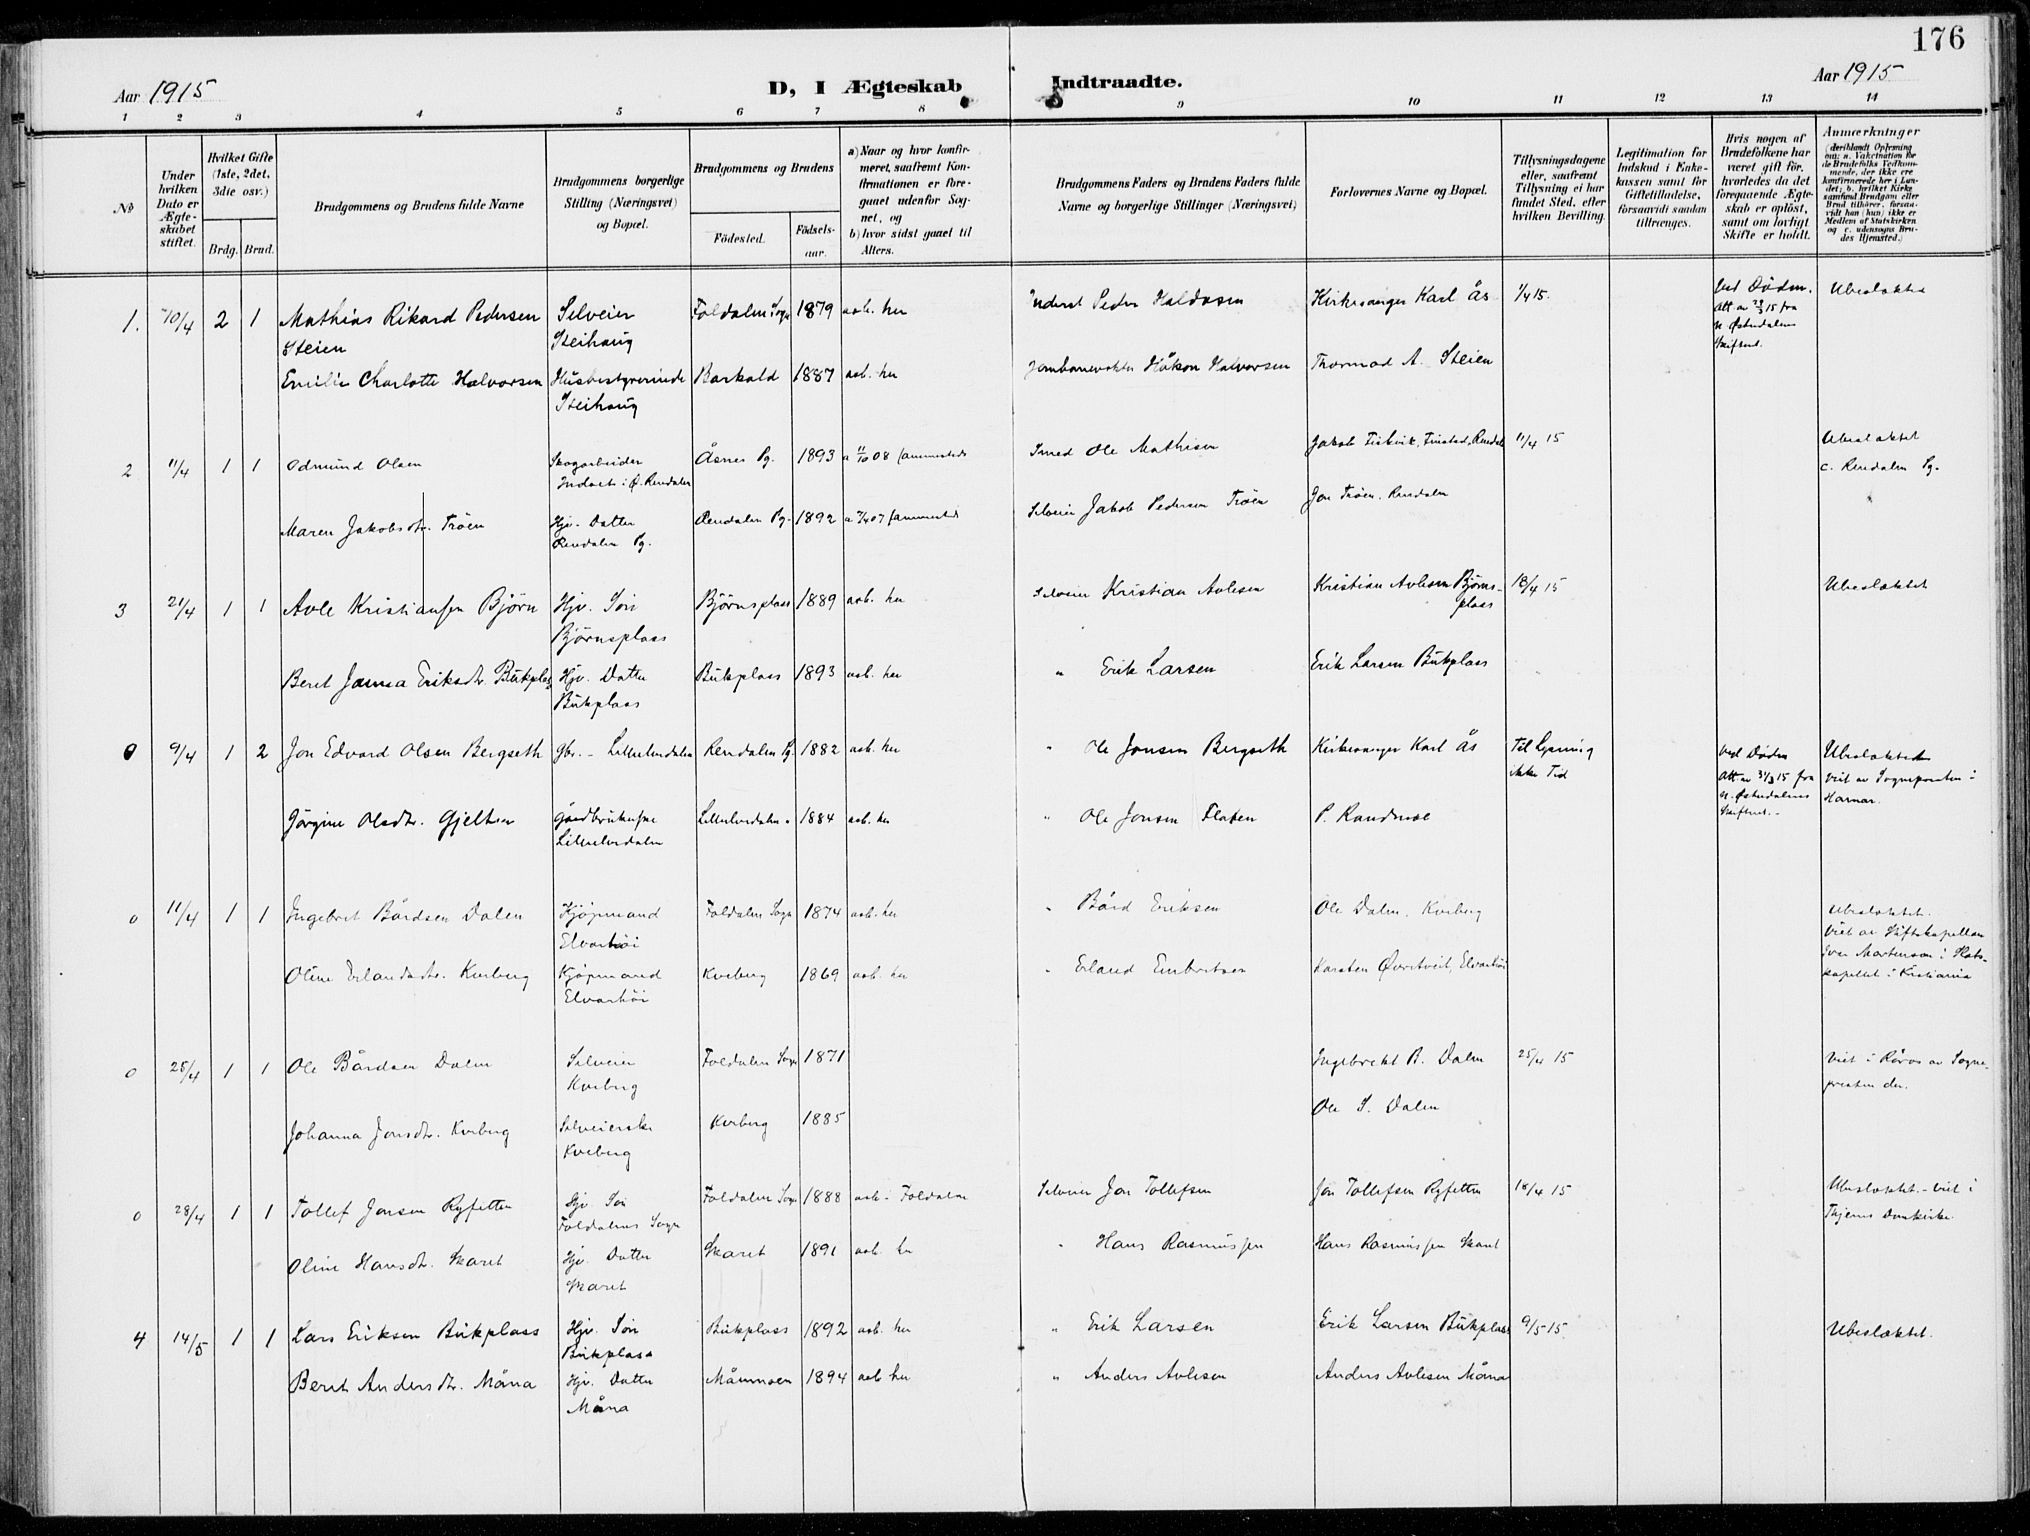 176
Aar 1915
D, I Ægteskab Indtraadte.
Aar 1915
1 2 3 4 5 6 7 8 9 10 11 12 13 14
No
Under hvilken Dato er Ægteskabet stiftet.
Hvilket Gifte (1ste, 2det, 3die osv.)
Brdg. Brud.
Brudgommens og Brudens fulde Navne
Brudgommens borgerlige Stilling (Næringsvei) og Bopæl.
Brudgommens og Brudens
Födested.
Födsels-aar.
a) Naar og hvor konfirmeret, saafremt Konfirmationen er foregaaet udenfor Sognet, og
b) hvor sidst gaaet til Alters.
Brudgommens Faders og Brudens Faders fulde Navne og borgerlige Stillinger (Næringsvei)
Forlovernes Navne og Bopæl.
Tillysningsdagene eller, saafremt Tillysning ei har fundet Sted, efter hvilken Bevilling.
Legitimation for Indskud i Enkekassen samt for Giftetilladelse, forsaavidt saadan tiltrænges.
Hvis nogen af Brudefolkene har været gift för, hvorledes da det foregaaende Ægteskab er oplöst, samt om lovligt Skifte er holdt.
Anmærkninger
(deriblandt Oplysning om: a. Vakcination for de Brudefolks Vedkommende, der ikke ere konfirmerede her i Landet; b. hvilket Kirkesamfund Brudgom eller Brud tilhörer, forsaavidt han (hun) ikke er Medlem af Statskirken og c. udensogns Brudes Hjemsted.)
1. 10/4 2 1 Mathias Rikard Pedersen Steien Selveier Steihaug Foldalen Sogn 1879 a o b. her Peder Haldosen Kirkesanger Karl Ås 1/4 15. Ved Döden. Att. av 29/3 15 fra N. Østerdalens Skifteret. Ubeslæktet
Emilie Charlotte Halvorsen Husbestyrerinde Steihaug Barkald 1887 a o b. her Jernbanevokter Håkon Halvorsen Thormod A. Steien
2 11/4 1 1 Odmund Olsen Skogarbeider Indset i Ø. Rendalen Åsnes Pg. 1893 a 11/10 08 Smed Ole Mathisen Jakob Fiskvik, Finstad, Rendal 11/4 15 Ubeslæktet c. Rendalen Pg.
Maren Jakobsdtr. Tröen Hjv. Datter Rendalen Pg. Rendalen Pg. 1892 Selveier Jakob Pedersen Tröen Jon Tröen, Rendalen
3 21/4 1 1 Avle Kristiansen Björn Hjv. Sön Björnsplass Björnsplass 1889 a o b. her Selveier Kristian Avlesen Kristian Avlesen Björnsplass 18/4 15 Ubeslæktet
Beret Janna Eriksdtr. Bukplass Hjv. Datter Bukplass Bukplass 1893 a o b. her " Erik Larsen Erik Larsen Bukplass
0 9/4 1 2 Jon Edvard Olsen Bergseth Gbr. - Lilleelvedalen Rendalen Pg. 1882 a o b. her " Ole Jonsen Bergseth Kirkesanger Karl Ås Til Lysning ikke Tid Ved Döden Att. av 31/3 15 fra N. Østerdalens Skifteret. - Ubeslæktede viet av Sognepresten i Hamar.
Jörgine Olsdtr. Gjelten Lilleelvedalen Lilleelvedalen. 1884 a o b. her " Ole Jonsen Flaten P. Randmæl
0 11/4 1 1 Ingebret Bårdsen Dalen Kjöpmand Elvashöi Foldalen Sogn 1874 a o b. her " Bård Eriksen Ole Dalen, Kveberg Ubeslæktet. Viet av Stiftskapellan Ivar Mortenson i Kristiania
Oline Erlandsdtr. Kveberg Kjöpmand Elvashöi Kveberg 1869 a o b. her " Erland Embretsen Karsten Øvretveit, Elvashöi
0 25/4 1 1 Ole Bårdsen Dalen Selveier Kveberg Foldalen Sogn 1871 Ingebrekt B. Dalen 25/4 15 Viet i Röros av Sognepresten der.
Johanna Jonsdtr. Kveberg Selveierske Kveberg Kveberg 1885 Ole S. Dalen
0 28/4 1 1 Tollef Jonsen Ryfetten Hjv. Sön Foldalens Sogn Foldalen Sogn 1888 a o b - Foldalen Selveier Jon Tollefsen Jon Tollefsen Ryfetten 18/4 15 Ubeslæktet - viet i Thjems Domkirke.
Oline Hansdtr. Skaret Hjv. Datter Skaret Skaret 1891 a o b. her " Hans Rasmussen Hans Rasmussen Skaret
4 14/5 1 1 Lars Eriksen Bukplass Hjv. Sön Bukplass Bukplass 1892 a o b. her " Erik Larsen Erik Larsen Bukplass 9/5 15. Ubeslæktet.
Beret Andersdtr. Måna Hjv. Datter Måna 1894 a o b her " Anders Avlesen Anders Avlesen Måna